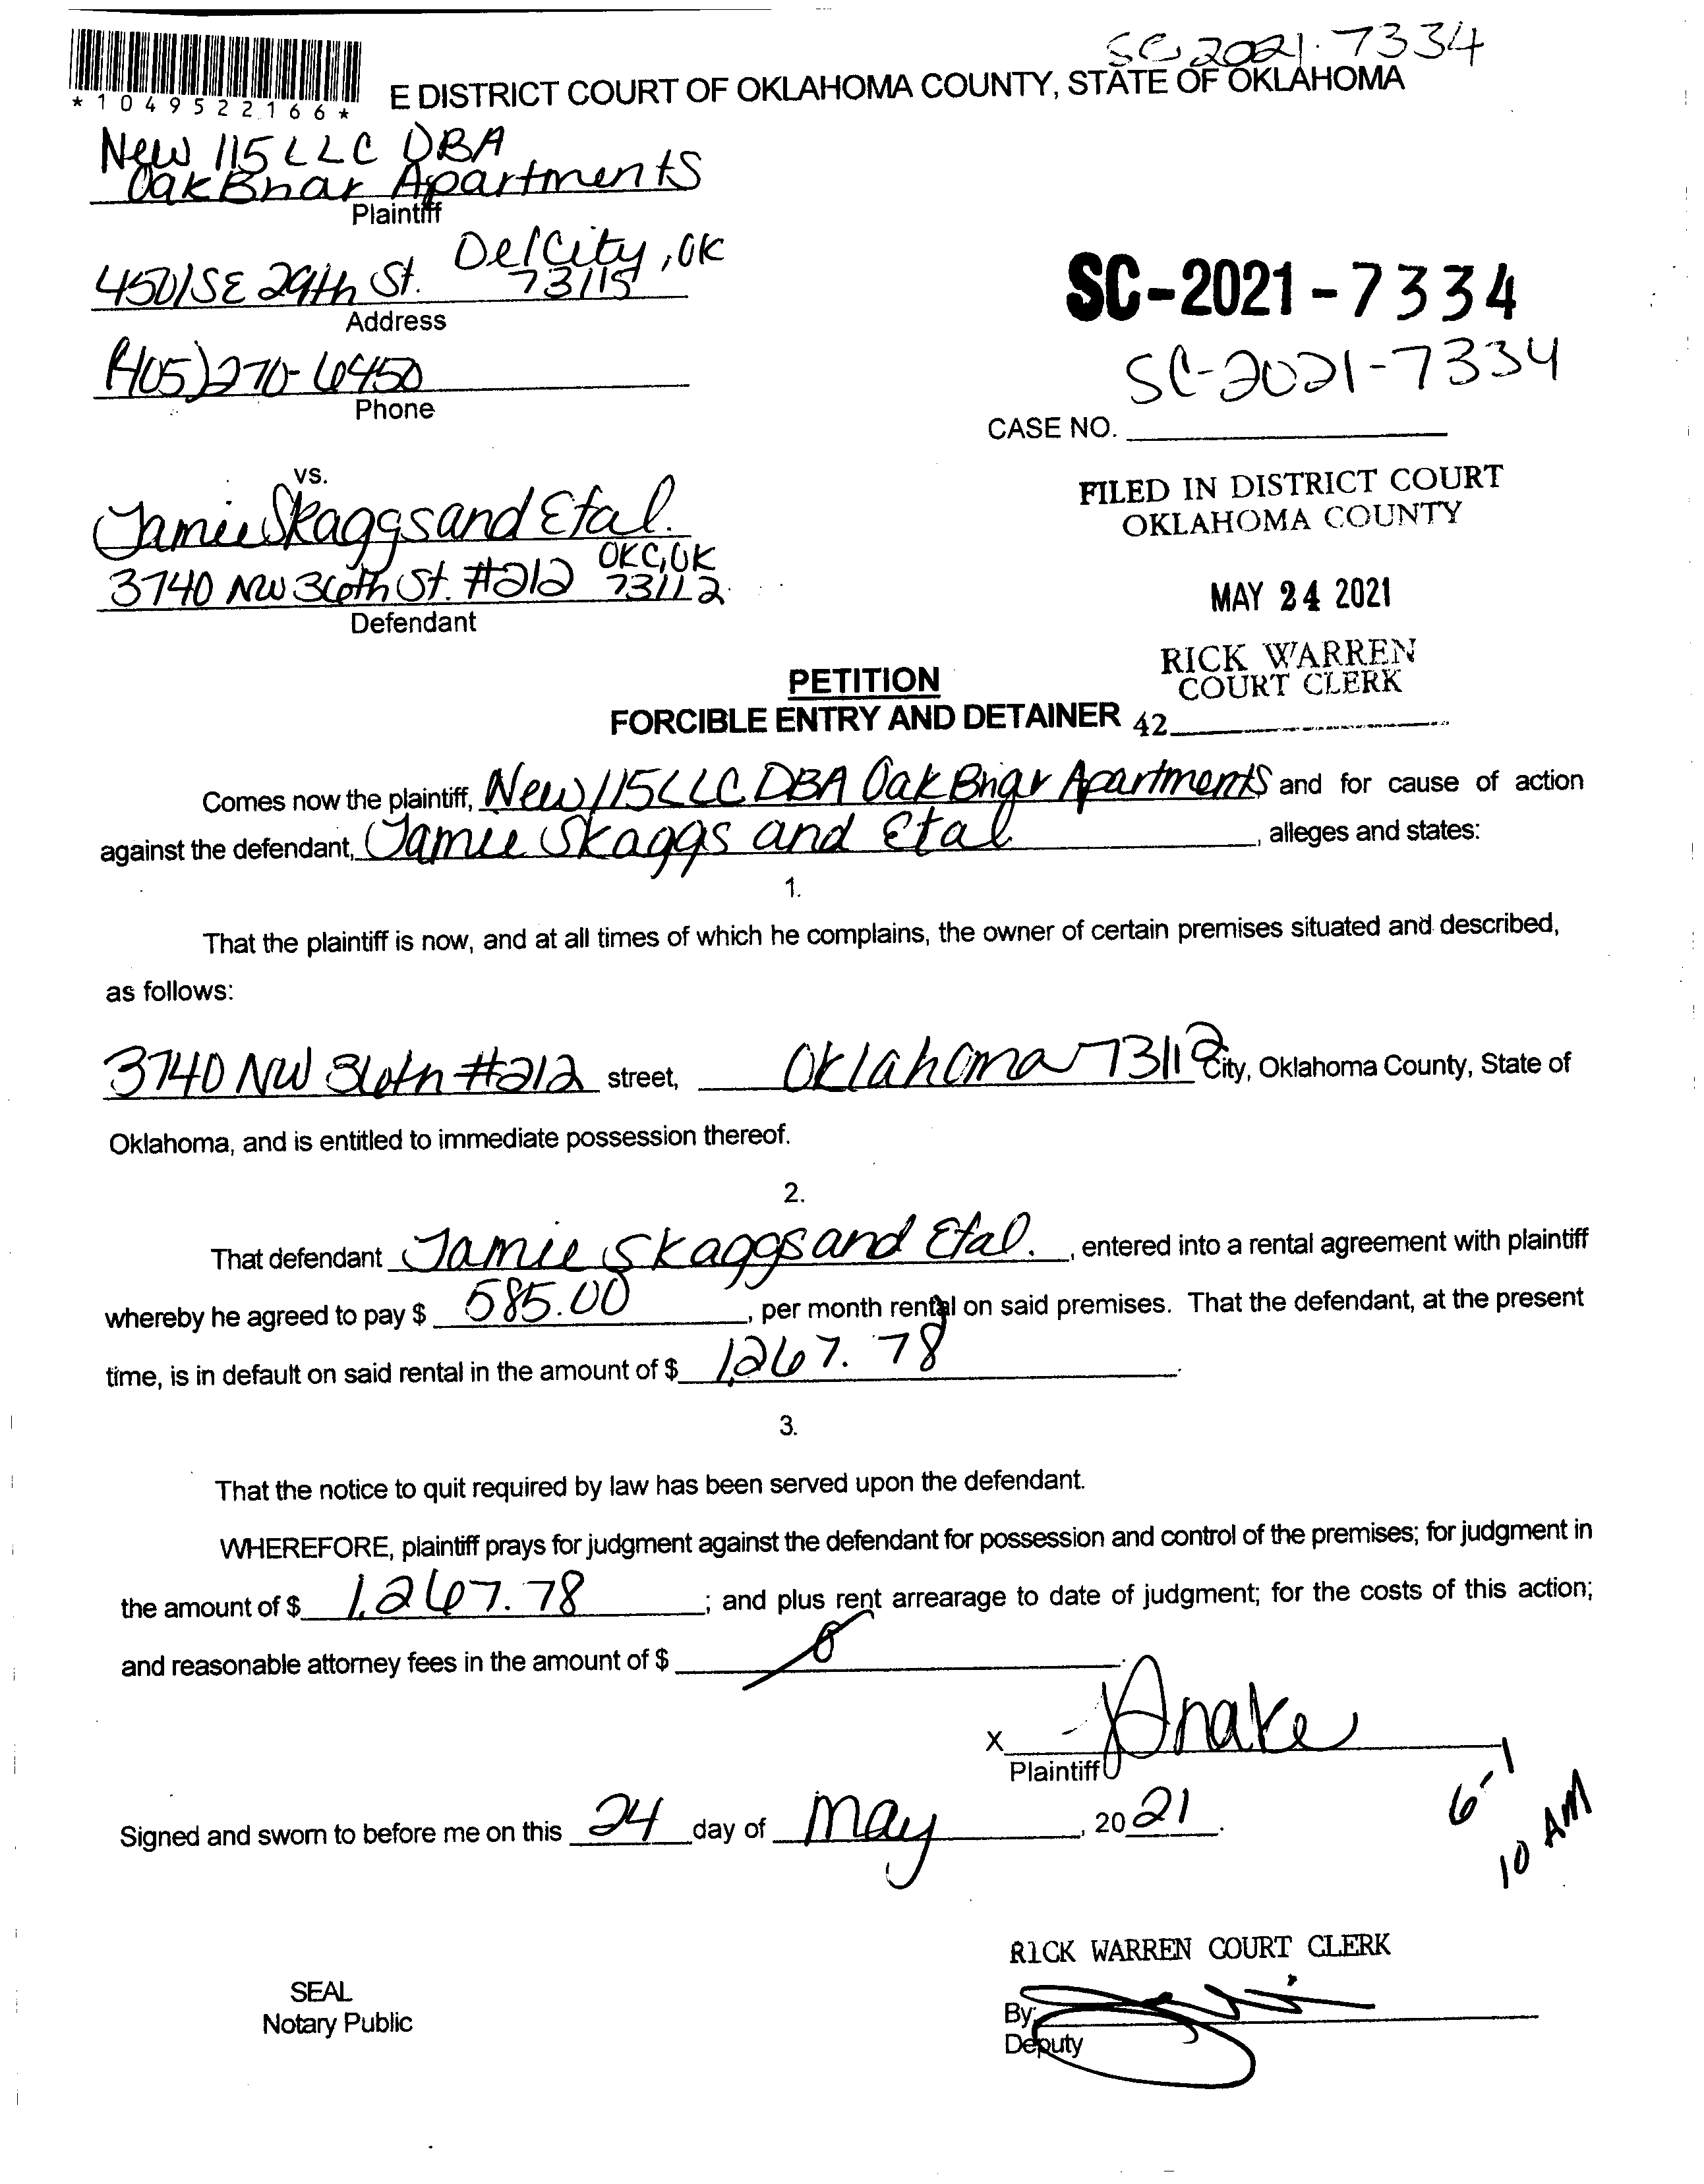 SC-2021-7334
*1049522166*
E DISTRICT COURT OF OKLAHOMA COUNTY, STATE OF OKLAHOMA
New 115 LLC DBA
Oak Briar Apartments
Plaintiff
4501 SE 29th St. Del City, OK
73115
Address
(405) 270-6450
Phone
SC-2021-7334
SC-2021-7334
CASE NO.
vs.
Jamie Skaggs and Etal.
3740 NW 36th St. #212 OKC, OK
73112
Defendant
FILED IN DISTRICT COURT
OKLAHOMA COUNTY
MAY 24 2021
RICK WARREN
COURT CLERK
42
PETITION
FORCIBLE ENTRY AND DETAINER
Comes now the plaintiff, New 115 LLC DBA Oak Briar Apartments and for cause of action
against the defendant, Jamie Skaggs and Etal, alleges and states:
1.
That the plaintiff is now, and at all times of which he complains, the owner of certain premises situated and described,
as follows:
3740 NW 36th #212 street, Oklahoma 73112 City, Oklahoma County, State of
Oklahoma, and is entitled to immediate possession thereof.
2.
That defendant Jamie Skaggs and Etal., entered into a rental agreement with plaintiff
whereby he agreed to pay $ 585.00, per month rental on said premises. That the defendant, at the present
time, is in default on said rental in the amount of $ 1,267.78.
3.
That the notice to quit required by law has been served upon the defendant.
WHEREFORE, plaintiff prays for judgment against the defendant for possession and control of the premises; for judgment in
the amount of $ 1,267.78; and plus rent arrearage to date of judgment; for the costs of this action;
and reasonable attorney fees in the amount of $ 0.
X
Plaintiff
Signed and sworn to before me on this 24 day of May, 2021.
6-1
10 AM
RICK WARREN COURT CLERK
SEAL
Notary Public
By:
Deputy